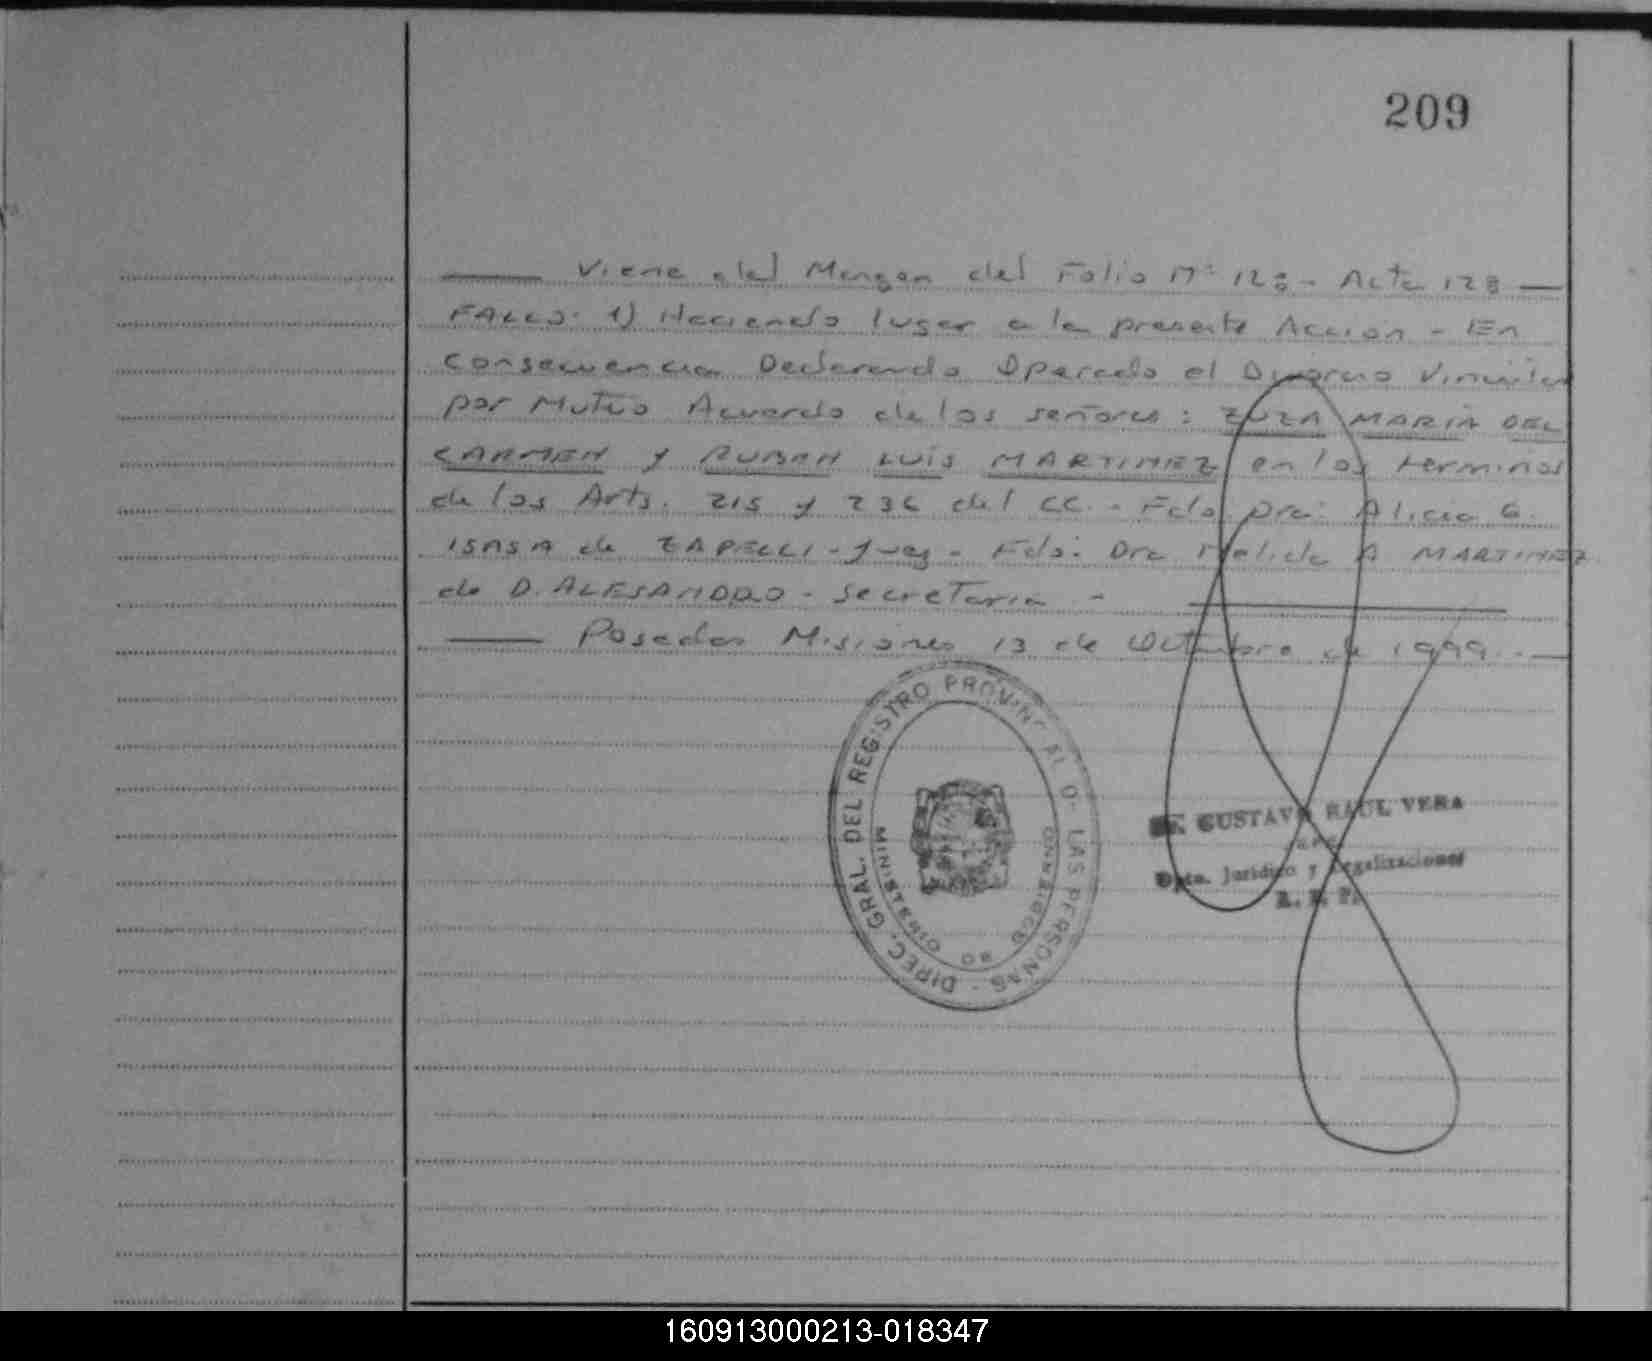 209
Viene del Margen del Folio Nº 128 - Acta 128
FALLO. 1) Haciendo lugar a la presente Acción - En
consecuencia Declarando Operado el Divorcio Vincular
por Mutuo Acuerdo de los señores: ZUZA MARIA DEL
CARMEN y RUBEN LUIS MARTINEZ en los terminos
de los Arts. 215 y 236 del CC. - Fdo. Dra: Alicia G.
ISASA de ZAPELLI - Juez - Fdo: Dra Nelida A MARTINEZ
de D.ALESANDRO - Secretaria -
Posadas Misiones 13 de Octubre de 1999.-
DIREC. GRAL. DEL REGISTRO PROVINCIAL D LAS PERSONAS -
MINISTERIO DE GOBIERNO
GUSTAVO RAUL VERA
Dpto. Jurídico y Legalizaciones
R. P. P.
160913000213-018347